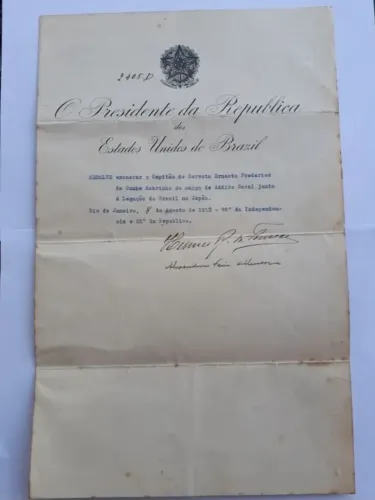 2405.D
O Presidente da Republica
dos
Estados Unidos do Brazil
RESOLVE exonerar o Capitão de Corveta Ernesto Frederico
da Cunha Sobrinho do cargo de Addido Naval junto
á Legação do Brazil no Japão.
Rio de Janeiro, 8 de Agosto de 1913 - 92º da Independen-
cia e 25º da Republica.
Hermes R. da Fonseca